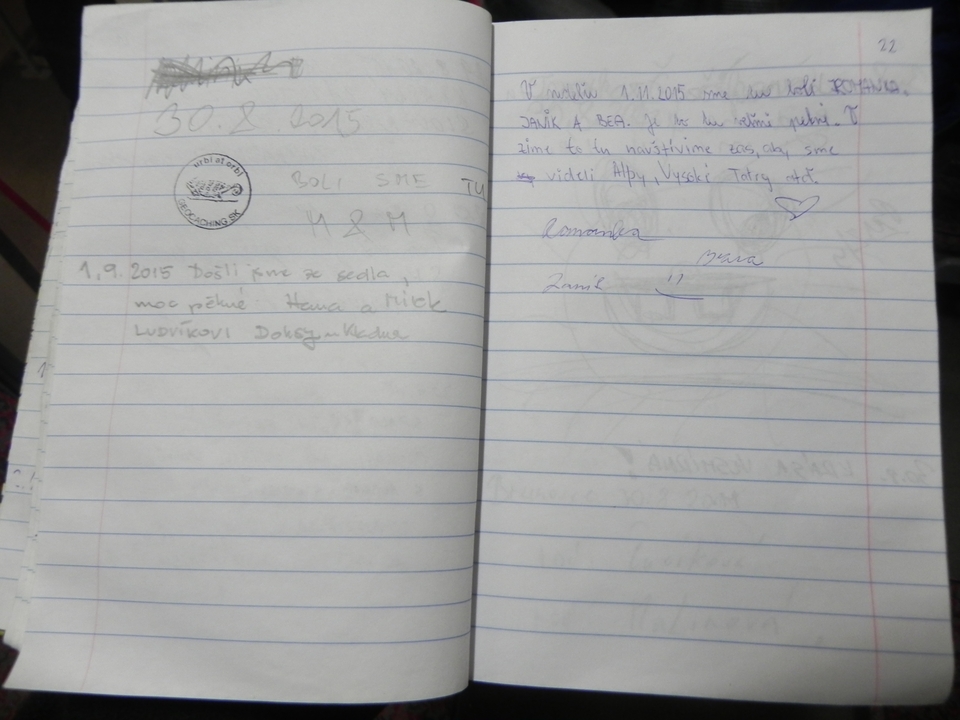 30.8 2015
urbi et orbi
GEOCACHING.SK
BOLI SME TU
M & M
1.9.2015 Došli jsme ze sedla,
moc pěkné. Hana a Mirek
LUDVÍKOVI Doksy u Kladna
22
V nedeľu 1.11.2015 sme tu boli ROMANKA,
JANÍK A BEA. Je to tu veľmi pekné. V
zime to tu navštívime zas, aby sme
videli Alpy, Vysoké Tatry atď.
Romanka
Janík